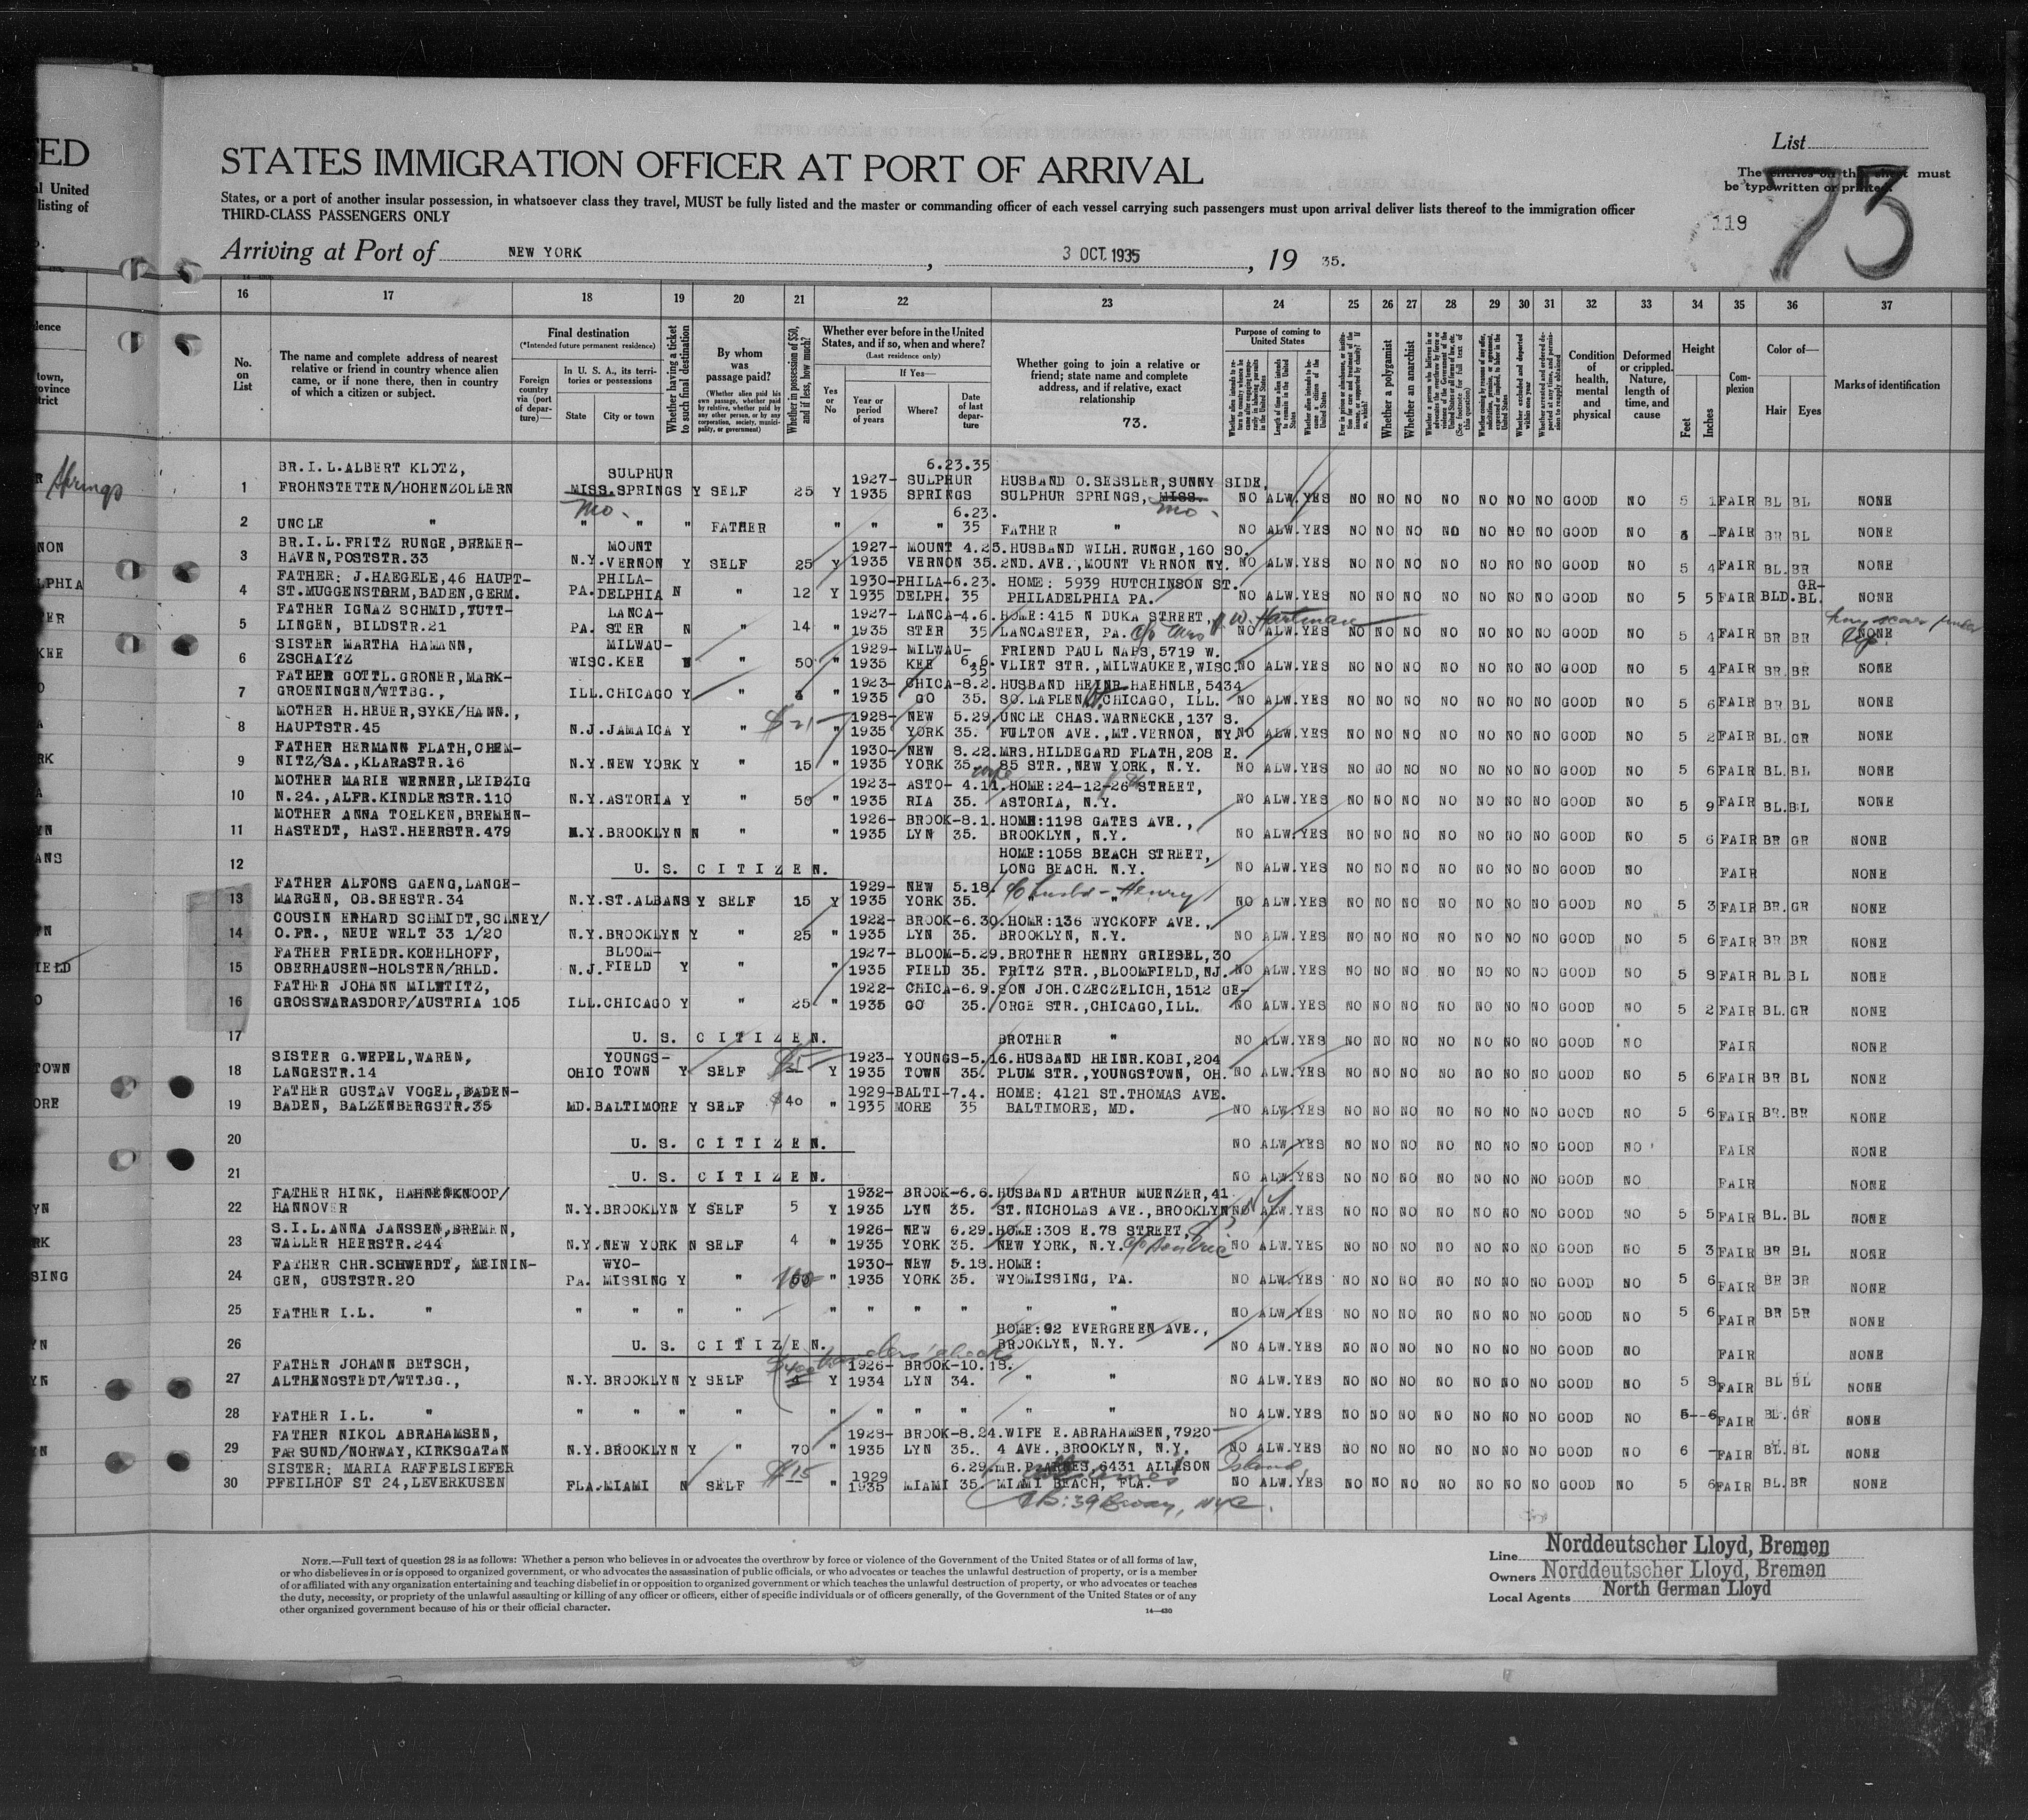 ED
al United
listing of
STATES IMMIGRATION OFFICER AT PORT OF ARRIVAL
List
The entries on this sheet must
be typewritten or printed.
73
119
States, or a port of another insular possession, in whatsoever class they travel, MUST be fully listed and the master or commanding officer of each vessel carrying such passengers must upon arrival deliver lists thereof to the immigration officer
THIRD-CLASS PASSENGERS ONLY
Arriving at Port of NEW YORK, 3 OCT. 1935, 19 35.
16 17 18 19 20 21 22 23 24 25 26 27 28 29 30 31 32 33 34 35 36 37
No. on List
The name and complete address of nearest relative or friend in country whence alien came, or if none there, then in country of which a citizen or subject.
Final destination
(*Intended future permanent residence)
Foreign country via (port of departure)—
In U. S. A., its territories or possessions
State City or town
Whether having a ticket to such final destination
By whom was passage paid?
(Whether alien paid his own passage, whether paid by relative, whether paid by any other person, or by any corporation, society, municipality, or government)
Whether in possession of $50, and if less, how much?
Whether ever before in the United States, and if so, when and where?
(Last residence only)
Yes or No
If Yes—
Year or period of years
Where?
Date of last departure
Whether going to join a relative or friend; state name and complete address, and if relative, exact relationship
73.
Purpose of coming to United States
Whether a polygamist
Whether an anarchist
Condition of health, mental and physical
Deformed or crippled. Nature, length of time, and cause
Height
Feet Inches
Complexion
Color of—
Hair Eyes
Marks of identification
1 BR.I.L.ALBERT KLOTZ, FROHNSTETTEN/HOHENZOLLERN MISS. Mo. SULPHUR SPRINGS Y SELF 25 Y 1927-1935 SULPHUR SPRINGS 6.23.35 HUSBAND O.SESSLER,SUNNY SIDE, SULPHUR SPRINGS, MISS. Mo. NO ALW. YES NO NO NO NO NO NO NO GOOD NO 5 1 FAIR BL BL NONE
2 UNCLE " " " " FATHER " " " 6.23. 35 FATHER " NO ALW. YES NO NO NO NO NO NO NO GOOD NO - FAIR BR BL NONE
3 BR.I.L.FRITZ RUNGE,BREMERHAVEN,POSTSTR.33 N.Y. MOUNT VERNON Y SELF 25 Y 1927-1935 MOUNT VERNON 4.25. 35. HUSBAND WILH. RUNGE,160 SO. 2ND. AVE.,MOUNT VERNON NY. NO ALW. YES NO NO NO NO NO NO NO GOOD NO 5 4 FAIR BL. BR NONE
4 FATHER: J.HAEGELE,46 HAUPTST.MUGGENSTURM,BADEN,GERM. PA. PHILADELPHIA N " 12 Y 1930-1935 PHILADELPH. 6.23. 35 HOME: 5939 HUTCHINSON ST. PHILADELPHIA PA. NO ALW. YES NO NO NO NO NO NO NO GOOD NO 5 5 FAIR BLD. GR-BL. NONE
5 FATHER IGNAZ SCHMID,TUTTLINGEN, BILDSTR.21 PA. LANCASTER N " 14 " 1927-1935 LANCASTER 4.6. 35 HOME:415 N DUKA STREET, LANCASTER, PA. c/o Mrs W. Hartman NO ALW. YES NO NO NO NO NO NO NO GOOD NO 5 4 FAIR BR BR NONE
6 SISTER MARTHA HAMANN, ZSCHAITZ WISC. MILWAUKEE N " 50 " 1929-1935 MILWAUKEE 6.6. 35 FRIEND PAUL NAPS,5719 W. VLIET STR.,MILWAUKEE,WISC. NO ALW. YES NO NO NO NO NO NO NO GOOD NO 5 4 FAIR BR. BR NONE
7 FATHER GOTTL.GRONER,MARKGROENINGEN/WTTBG., ILL. CHICAGO Y " " 1923-1935 CHICAGO 8.2. 35. HUSBAND HEINR.HAEHNLE,5434 SO.LAFLEN CHICAGO, ILL. NO ALW. YES NO NO NO NO NO NO NO GOOD NO 5 6 FAIR BR BL NONE
8 MOTHER H.HEUER,SYKE/HANN., HAUPTSTR.45 N.J. JAMAICA Y " $21 " 1928-1935 NEW YORK 5.29. 35. UNCLE CHAS.WARNECKE,137 S. FULTON AVE.,MT.VERNON, NY. NO ALW. YES NO NO NO NO NO NO NO GOOD NO 5 2 FAIR BL. GR NONE
9 FATHER HERMANN FLATH,CHEMNITZ/SA.,KLARASTR.16 N.Y. NEW YORK Y " 15 " 1930-1935 NEW YORK 8.22. 35. MRS.HILDEGARD FLATH,208 E. 85 STR.,NEW YORK, N.Y. NO ALW. YES NO NO NO NO NO NO NO GOOD NO 5 6 FAIR BL. BL NONE
10 MOTHER MARIE WERNER,LEIPZIG N.24.,ALFR.KINDLERSTR.110 N.Y. ASTORIA Y " 50 " 1923-1935 ASTORIA 4.11. 35. HOME:24-12-26 STREET, ASTORIA, N.Y. NO ALW. YES NO NO NO NO NO NO NO GOOD NO 5 9 FAIR BL. BL NONE
11 MOTHER ANNA TOELKEN,BREMENHASTEDT, HAST.HEERSTR.479 N.Y. BROOKLYN N " " 1926-1935 BROOKLYN 8.1. 35. HOME:1198 GATES AVE., BROOKLYN, N.Y. NO ALW. YES NO NO NO NO NO NO NO GOOD NO 5 6 FAIR BR GR NONE
12 U. S. CITIZEN. HOME:1058 BEACH STREET, LONG BEACH. N.Y. NO ALW. YES NO NO NO NO NO NO NO GOOD NO FAIR NONE
13 FATHER ALFONS GAENG,LANGEMARGEN, OB.SEESTR.34 N.Y. ST.ALBANS Y SELF 15 Y 1929-1935 NEW YORK 5.18. 35. c/o husb - Henry " " NO ALW. YES NO NO NO NO NO NO NO GOOD NO 5 3 FAIR BR. GR NONE
14 COUSIN ERHARD SCHMIDT,SCHNEY/O.FR., NEUE WELT 33 1/20 N.Y. BROOKLYN Y " 25 " 1922-1935 BROOKLYN 6.30. 35. HOME:136 WYCKOFF AVE., BROOKLYN, N.Y. NO ALW. YES NO NO NO NO NO NO NO GOOD NO 5 6 FAIR BR BR NONE
15 FATHER FRIEDR.KOEHLHOFF, OBERHAUSEN-HOLSTEN/RHLD. N.J. BLOOMFIELD Y " " 1927-1935 BLOOMFIELD 5.29. 35. BROTHER HENRY GRIESEL,30 FRITZ STR.,BLOOMFIELD,NJ. NO ALW. YES NO NO NO NO NO NO NO GOOD NO 5 8 FAIR BL BL NONE
16 FATHER JOHANN MILETITZ, GROSSWARASDORF/AUSTRIA 105 ILL. CHICAGO Y " 25 " 1922-1935 CHICAGO 6.9. 35. SON JOH.CZECZELICH,1512 GEORGE STR.,CHICAGO,ILL. NO ALW. YES NO NO NO NO NO NO NO GOOD NO 5 2 FAIR BL. GR NONE
17 U. S. CITIZEN. BROTHER " NO ALW. YES NO NO NO NO NO NO NO GOOD NO FAIR NONE
18 SISTER G.WEPEL,WAREN, LANGESTR.14 OHIO YOUNGSTOWN Y SELF Y 1923-1935 YOUNGSTOWN 5.16. 35. HUSBAND HEINR.KOBI,204 PLUM STR.,YOUNGSTOWN, OH. NO ALW. YES NO NO NO NO NO NO NO GOOD NO 5 6 FAIR BR BL NONE
19 FATHER GUSTAV VOGEL,BADEN-BADEN, BALZENBERGSTR.35 MD. BALTIMORE Y SELF $40 " 1929-1935 BALTIMORE 7.4. 35 HOME: 4121 ST.THOMAS AVE. BALTIMORE, MD. NO ALW. YES NO NO NO NO NO NO NO GOOD NO 5 6 FAIR BR. BR NONE
20 U. S. CITIZEN. NO ALW. YES NO NO NO NO NO NO NO GOOD NO FAIR NONE
21 U. S. CITIZEN. NO ALW. YES NO NO NO NO NO NO NO GOOD NO FAIR NONE
22 FATHER HINK, HAHNENKNOOP/HANNOVER N.Y. BROOKLYN Y SELF 5 Y 1932-1935 BROOKLYN 6.6. 35. HUSBAND ARTHUR MUENZER,41 ST.NICHOLAS AVE.,BROOKLYN NY NO ALW. YES NO NO NO NO NO NO NO GOOD NO 5 5 FAIR BL. BL NONE
23 S.I.L.ANNA JANSSEN,BREMEN, WALLER HEERSTR.244 N.Y. NEW YORK N SELF 4 " 1926-1935 NEW YORK 6.29. 35. HOME:308 E.78 STREET, NEW YORK, N.Y. NO ALW. YES NO NO NO NO NO NO NO GOOD NO 5 3 FAIR BR BL NONE
24 FATHER CHR.SCHWERDT, MEININGEN, GUSTSTR.20 PA. WYOMISSING Y " 100 " 1930-1935 NEW YORK 5.18. 35. HOME: WYOMISSING, PA. NO ALW. YES NO NO NO NO NO NO NO GOOD NO 5 6 FAIR BR BR NONE
25 FATHER I.L. " " " " " " " " " " " NO ALW. YES NO NO NO NO NO NO NO GOOD NO 5 6 FAIR BR BR NONE
26 U. S. CITIZEN. HOME:92 EVERGREEN AVE., BROOKLYN, N.Y. NO ALW. YES NO NO NO NO NO NO NO GOOD NO FAIR NONE
27 FATHER JOHANN BETSCH, ALTHENGSTEDT/WTTBG., N.Y. BROOKLYN Y SELF $400 Y 1926-1934 BROOKLYN 10.18. 34. " " NO ALW. YES NO NO NO NO NO NO NO GOOD NO 5 8 FAIR BL BL NONE
28 FATHER I.L. " " " " " " " " " " " NO ALW. YES NO NO NO NO NO NO NO GOOD NO 5-6 FAIR BL. GR NONE
29 FATHER NIKOL ABRAHAMSEN, FARSUND/NORWAY,KIRKSGATAN N.Y. BROOKLYN Y " 70 " 1928-1935 BROOKLYN 8.24. 35. WIFE E.ABRAHAMSEN,7920 4 AVE.,BROOKLYN, N.Y. NO ALW. YES NO NO NO NO NO NO NO GOOD NO 6 - FAIR BL. BL NONE
30 SISTER: MARIA RAFFELSIEFER PFEILHOF ST 24,LEVERKUSEN FLA. MIAMI N SELF $15 " 1929 1935 MIAMI 6.29. 35. MR.P. 6431 ALLISON Island, MIAMI BEACH, FLA. 39 Bway, NYC. NO ALW. YES NO NO NO NO NO NO NO GOOD NO 5 6 FAIR BL. BR NONE
NOTE.—Full text of question 28 is as follows: Whether a person who believes in or advocates the overthrow by force or violence of the Government of the United States or of all forms of law,
or who disbelieves in or is opposed to organized government, or who advocates the assassination of public officials, or who advocates or teaches the unlawful destruction of property, or is a member
of or affiliated with any organization entertaining and teaching disbelief in or opposition to organized government or which teaches the unlawful destruction of property, or who advocates or teaches
the duty, necessity, or propriety of the unlawful assaulting or killing of any officer or officers, either of specific individuals or of officers generally, of the Government of the United States or of any
other organized government because of his or their official character.
14—430
Line Norddeutscher Lloyd, Bremen
Owners Norddeutscher Lloyd, Bremen
Local Agents North German Lloyd